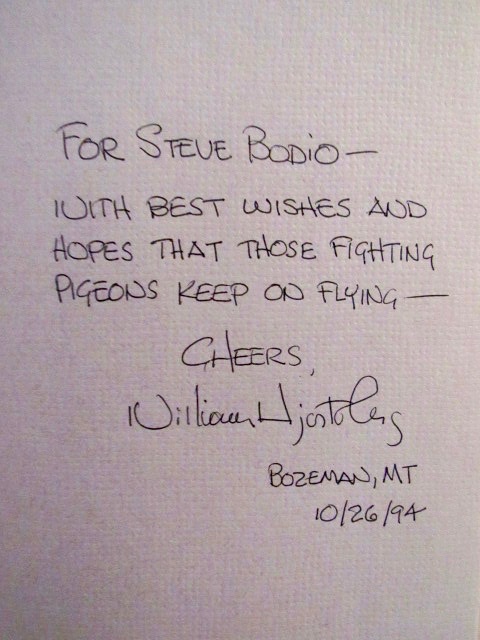 FOR STEVE BODIO —
WITH BEST WISHES AND
HOPES THAT THOSE FIGHTING
PIGEONS KEEP ON FLYING —
CHEERS,
William Hjortsberg
BOZEMAN, MT
10/26/94